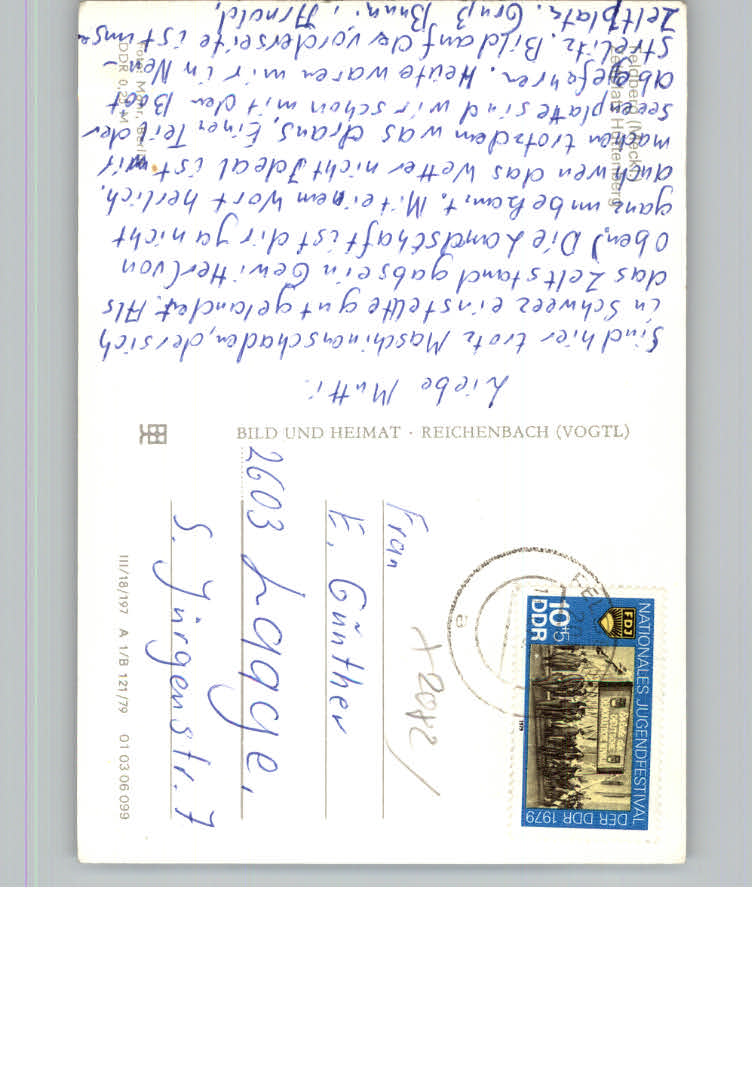 Feldberg (Meckl)
Zeltplatz Hüttenberg
Liebe Mutti!
Sind hier trotz Maschinenschaden, der sich
in Schweez einstellte gut gelandet. Als
das Zelt stand gabs ein Gewitter (von
oben) Die Landschaft ist dir ja nicht
ganz unbekannt. Mit einem Wort herlich,
auch wen das Wetter nicht Ideal ist wir
machen trotzdem was draus, Einen Teil der
seenplatte sind wir schon mit den Boot
abgefahren. Heute waren wir in Neu-
strelitz. Bild auf der vorderseite ist unser
Zeltplatz. Gruß Brun. i Arnold,
DDR 0,20 M
BILD UND HEIMAT · REICHENBACH (VOGTL)
III/18/197 A 1/B 121/79 01 03 06 099
Frau
E. Günther
2603 Laage,
S. Jürgenstr. 7
NATIONALES JUGENDFESTIVAL
DER DDR 1979
FDJ
10+5
DDR
1979
FEL
a